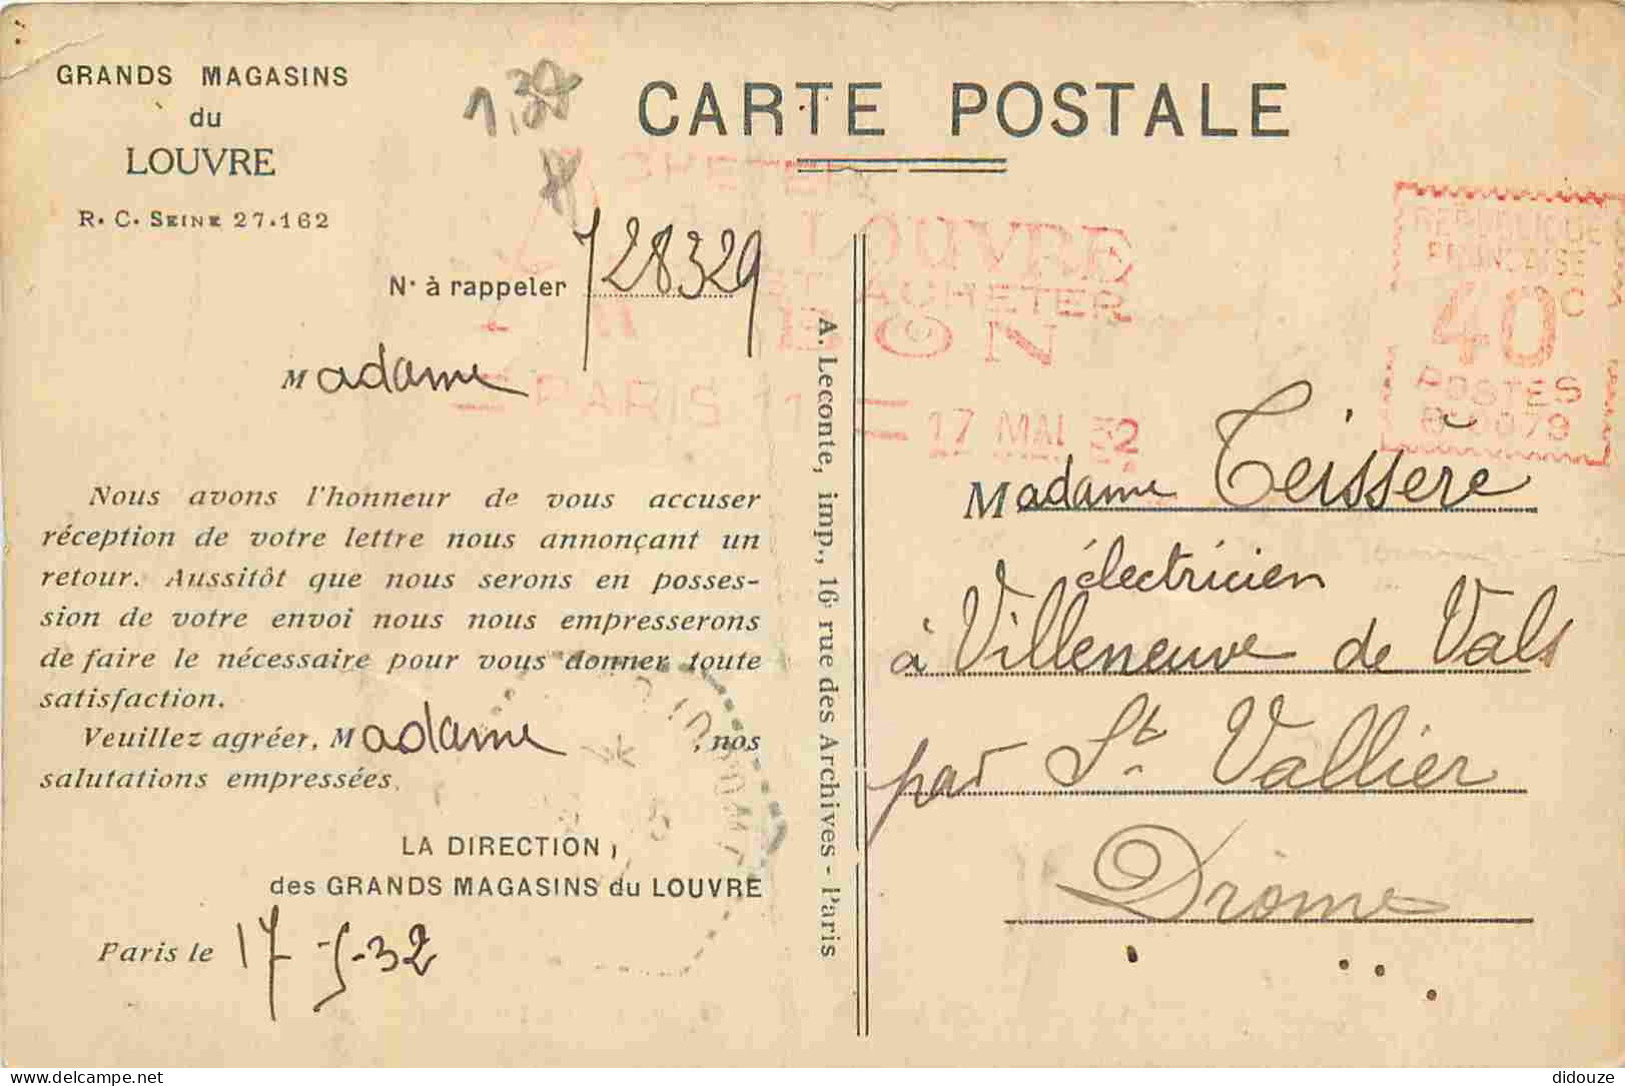 GRANDS MAGASINS
du
LOUVRE
R. C. SEINE 27.162
CARTE POSTALE
N° à rappeler 728329
Madame
LOUVRE
ET ACHETER
BON
PARIS 11
17 MAI 32
REPUBLIQUE
FRANÇAISE
40 C
POSTES
Nous avons l'honneur de vous accuser
réception de votre lettre nous annonçant un
retour. Aussitôt que nous serons en posses-
sion de votre envoi nous nous empresserons
de faire le nécessaire pour vous donner toute
satisfaction.
Veuillez agréer, Madame , nos
salutations empressées.
LA DIRECTION
des GRANDS MAGASINS du LOUVRE
Paris le 17-5-32
A. Leconte, imp., 16, rue des Archives - Paris
Madame Teissère
électricien
à Villeneuve de Vals
par St Vallier
Drôme
didouze